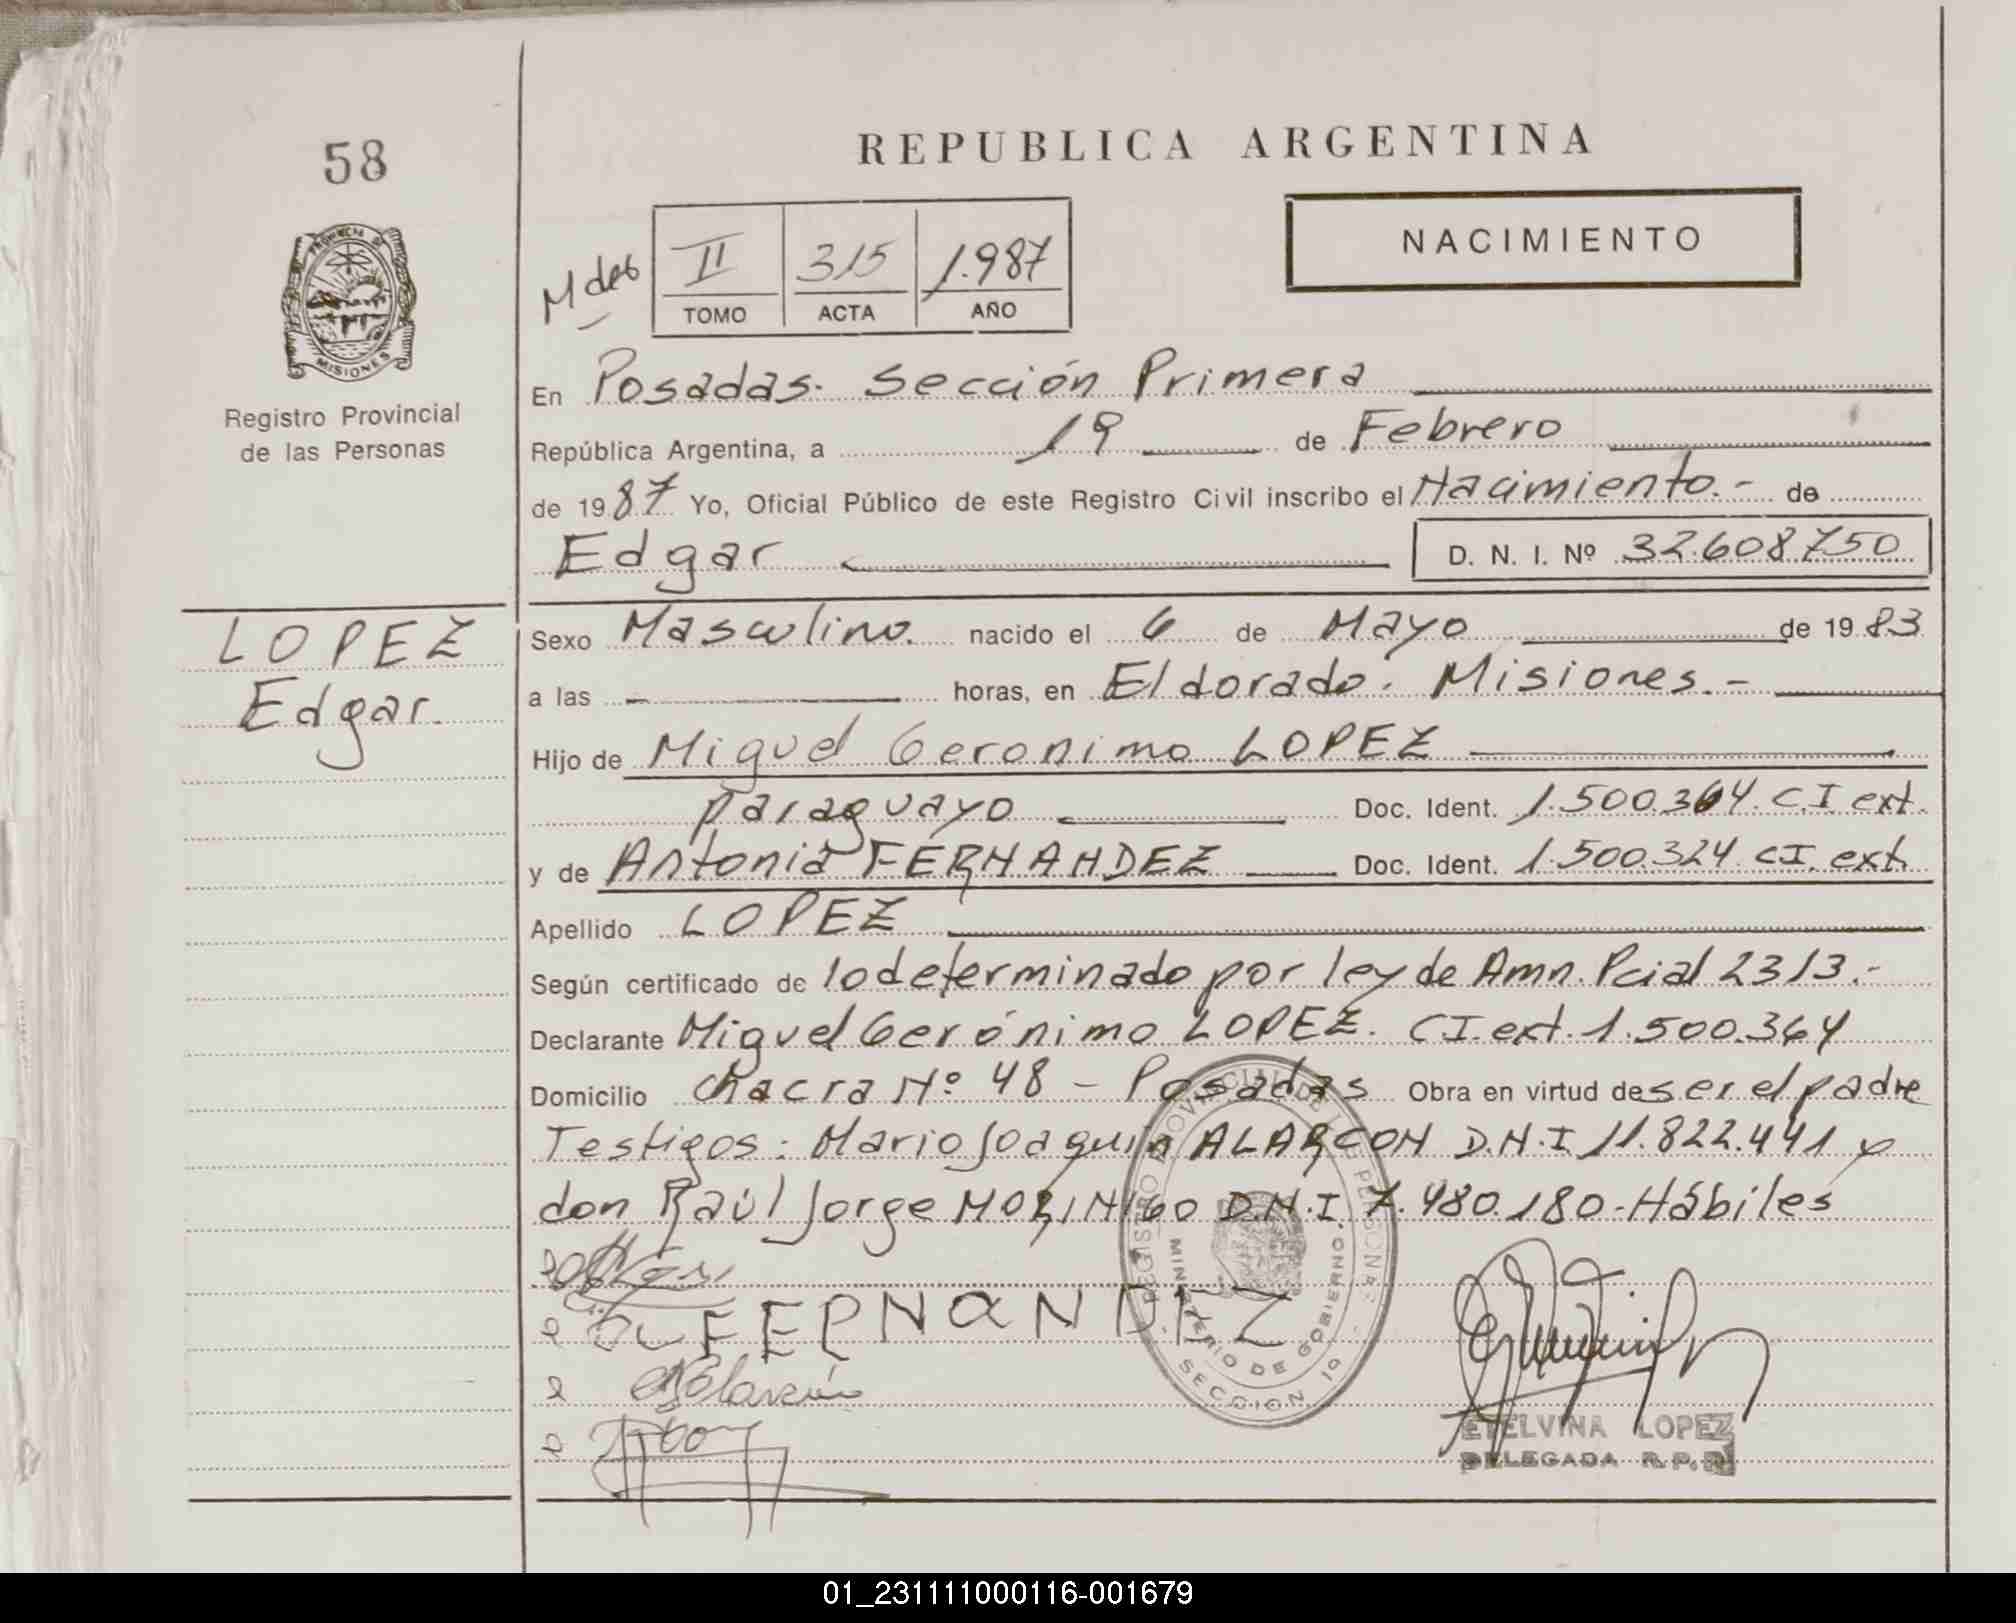 58
REPUBLICA ARGENTINA
NACIMIENTO
PROVINCIA DE
MISIONES
Registro Provincial
de las Personas
II 315 1.987
TOMO ACTA AÑO
En Posadas. Sección Primera
República Argentina, a 19 de Febrero
de 1987 Yo, Oficial Público de este Registro Civil inscribo el Nacimiento.- de
Edgar D. N. I. Nº 32.608.750
LOPEZ
Edgar.
Sexo Masculino. nacido el 6 de Mayo de 1983
a las — horas, en Eldorado. Misiones.-
Hijo de Miguel Geronimo LOPEZ
paraguayo Doc. Ident. 1.500.364. C.I ext.
y de Antonia FERNANDEZ Doc. Ident. 1.500.324. CI. ext.
Apellido LOPEZ
Según certificado de lo determinado por ley de Amn. Pcial 2313.-
Declarante Miguel Gerónimo LOPEZ. CI. ext. 1.500.364
Domicilio chacra Nº 48 - Posadas Obra en virtud de ser el padre
Testigos: Mario Joaquin ALARCON D.N.I 11.822.441 y
don Raúl Jorge MORINIGO D.N.I. 7.480.180.-Hábiles
FERNANDEZ
REGISTRO PROVINCIAL DE LAS PERSONAS
MINISTERIO DE GOBIERNO
SECCION 1a
ETELVINA LOPEZ
DELEGADA R.P.P.
01_231111000116-001679